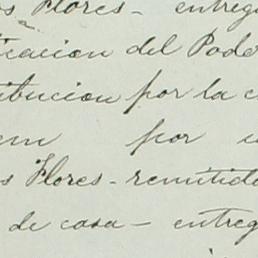 os Flores - entreg
icacion del Pode
ibucion por la c
em por
s Flores - remitido
de casa - entreg